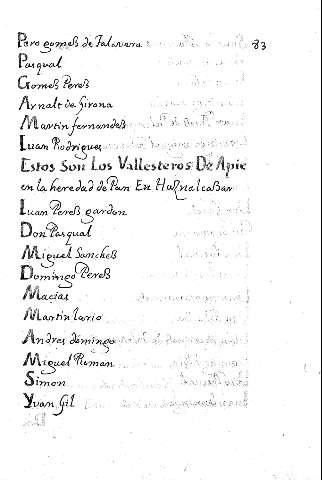 Pero gomeß de Talavera 83
Pasqual
Gomeß Pereß
Arnalt de Girona
Martin fernandeß
Luan Rodrigueß
Estos Son Los Vallesteros De Apie
en la heredad de Pan En Haznalcaßar
Luan Pereß gardon
Don Pasqual
Miguel Sancheß
Domingo Pereß
Macias
Martin Iario
Andres domingo
Miguel Roman
Simon
Yvan Gil